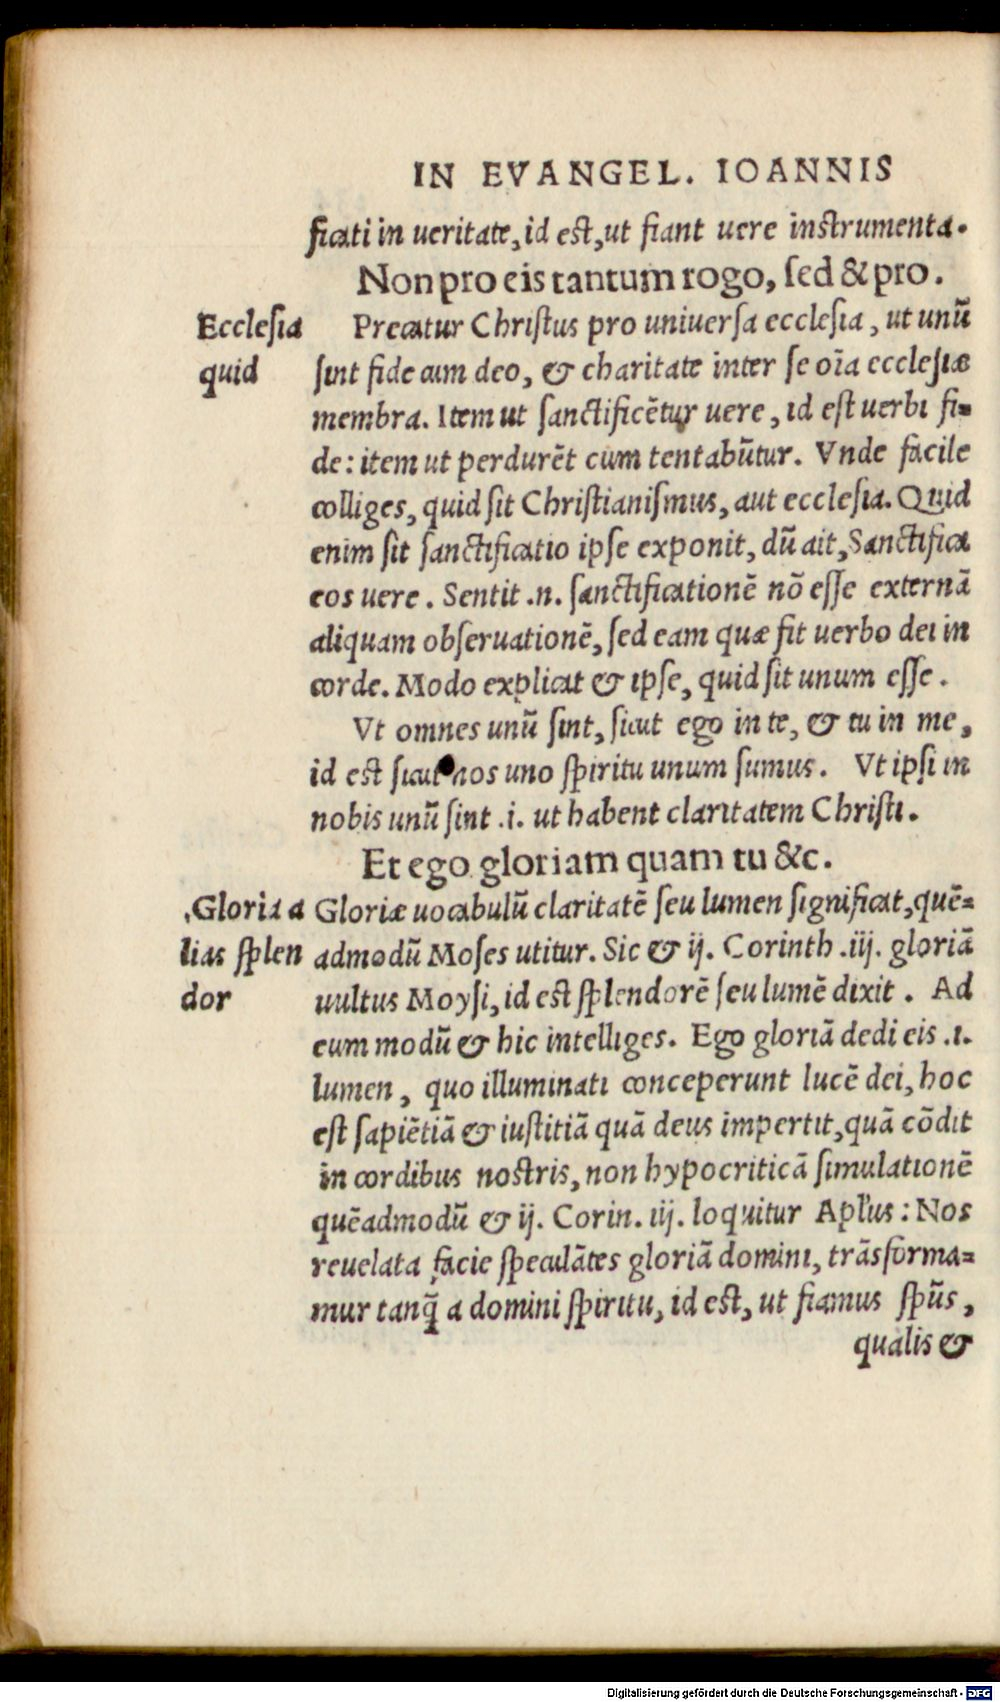 IN EVANGEL. IOANNIS
ficati in ueritate, id est, ut fiant uere instrumenta.
Non pro eis tantum rogo, sed & pro.
Ecclesia
quid
Precatur Christus pro uniuersa ecclesia, ut unū
sint fide cum deo, & charitate inter se oīa ecclesiæ
membra. Item ut sanctificētur uere, id est uerbi fi=
de: item ut perdurēt cum tentabūtur. Vnde facile
colliges, quid sit Christianismus, aut ecclesia. Quid
enim sit sanctificatio ipse exponit, dū ait, Sanctifica
eos uere. Sentit .n. sanctificationē nō esse externā
aliquam obseruationē, sed eam quæ fit uerbo dei in
corde. Modo explicat & ipse, quid sit unum esse.
Vt omnes unū sint, sicut ego in te, & tu in me,
id est sicut nos uno spiritu unum sumus. Vt ipsi in
nobis unū sint .i. ut habent claritatem Christi.
Et ego gloriam quam tu &c.
Gloria a
lias splen
dor
Gloriæ uocabulū claritatē seu lumen significat, quē=
admodū Moses utitur. Sic & ij. Corinth .iij. gloriā
uultus Moysi, id est splendorē seu lumē dixit. Ad
eum modū & hic intelliges. Ego gloriā dedi eis .i.
lumen, quo illuminati conceperunt lucē dei, hoc
est sapiētiā & iustitiā quā deus impertit, quā cōdit
in cordibus nostris, non hypocriticā simulationē
quēadmodū & ij. Corin. iij. loquitur Apl'us: Nos
reuelata facie speculātes gloriā domini, trāsforma=
mur tanq̄ a domini spiritu, id est, ut fiamus spūs,
qualis &
Digitalisierung gefördert durch die Deutsche Forschungsgemeinschaft - DFG